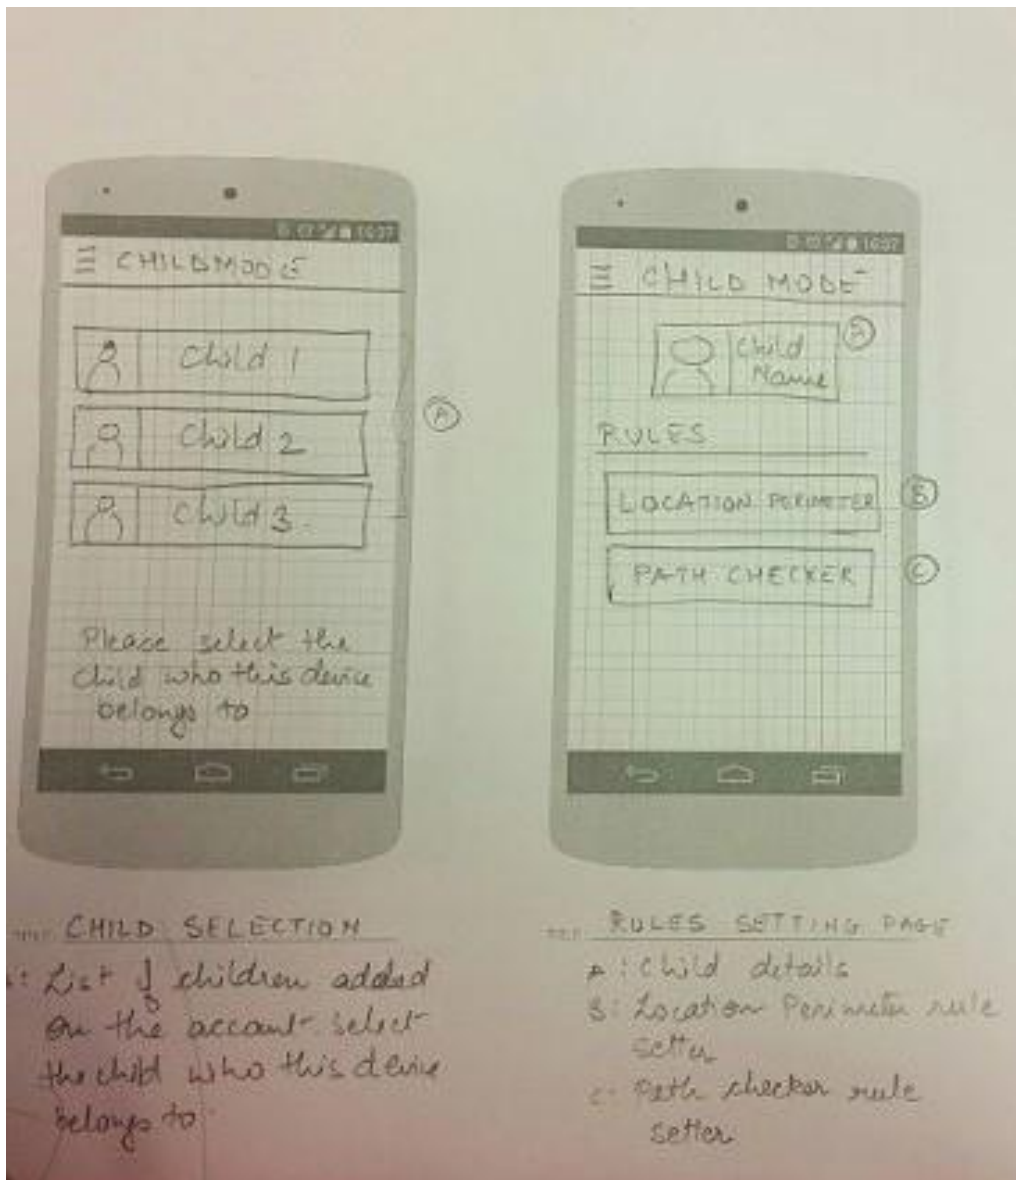 16:37
CHILD MODE
Child 1
Child 2
A
Child 3
Please select the
Child who this device
belongs to
CHILD SELECTION
: List of children added
on the account select
the child who this device
belongs to
16:37
CHILD MODE
A
Child
Name
RULES
LOCATION PERIMETER
B
PATH CHECKER
C
RULES SETTING PAGE
A: Child details
B: Location Perimeter rule
setter
C: Path checker rule
setter